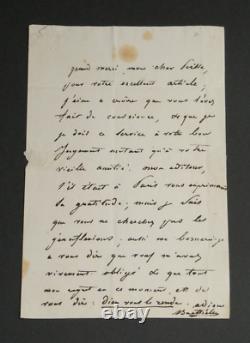 grand merci, mon cher
pour votre excellent article;
j'aime à croire que vous l'avez
fait de conscience, et que je
dois ce service à votre bon
jugement autant qu'à notre
vieille amitié. mon éditeur,
s'il était à Paris vous exprimerait
sa gratitude; mais je sais
que vous ne cherchez pas les
génuflexions; aussi me bornerai-je
à vous dire que vous m'avez
vivement obligé et que tout
mon regret en ce moment, est de
vous dire: dieu vous le rende. adieu
© thecelebritycards.com